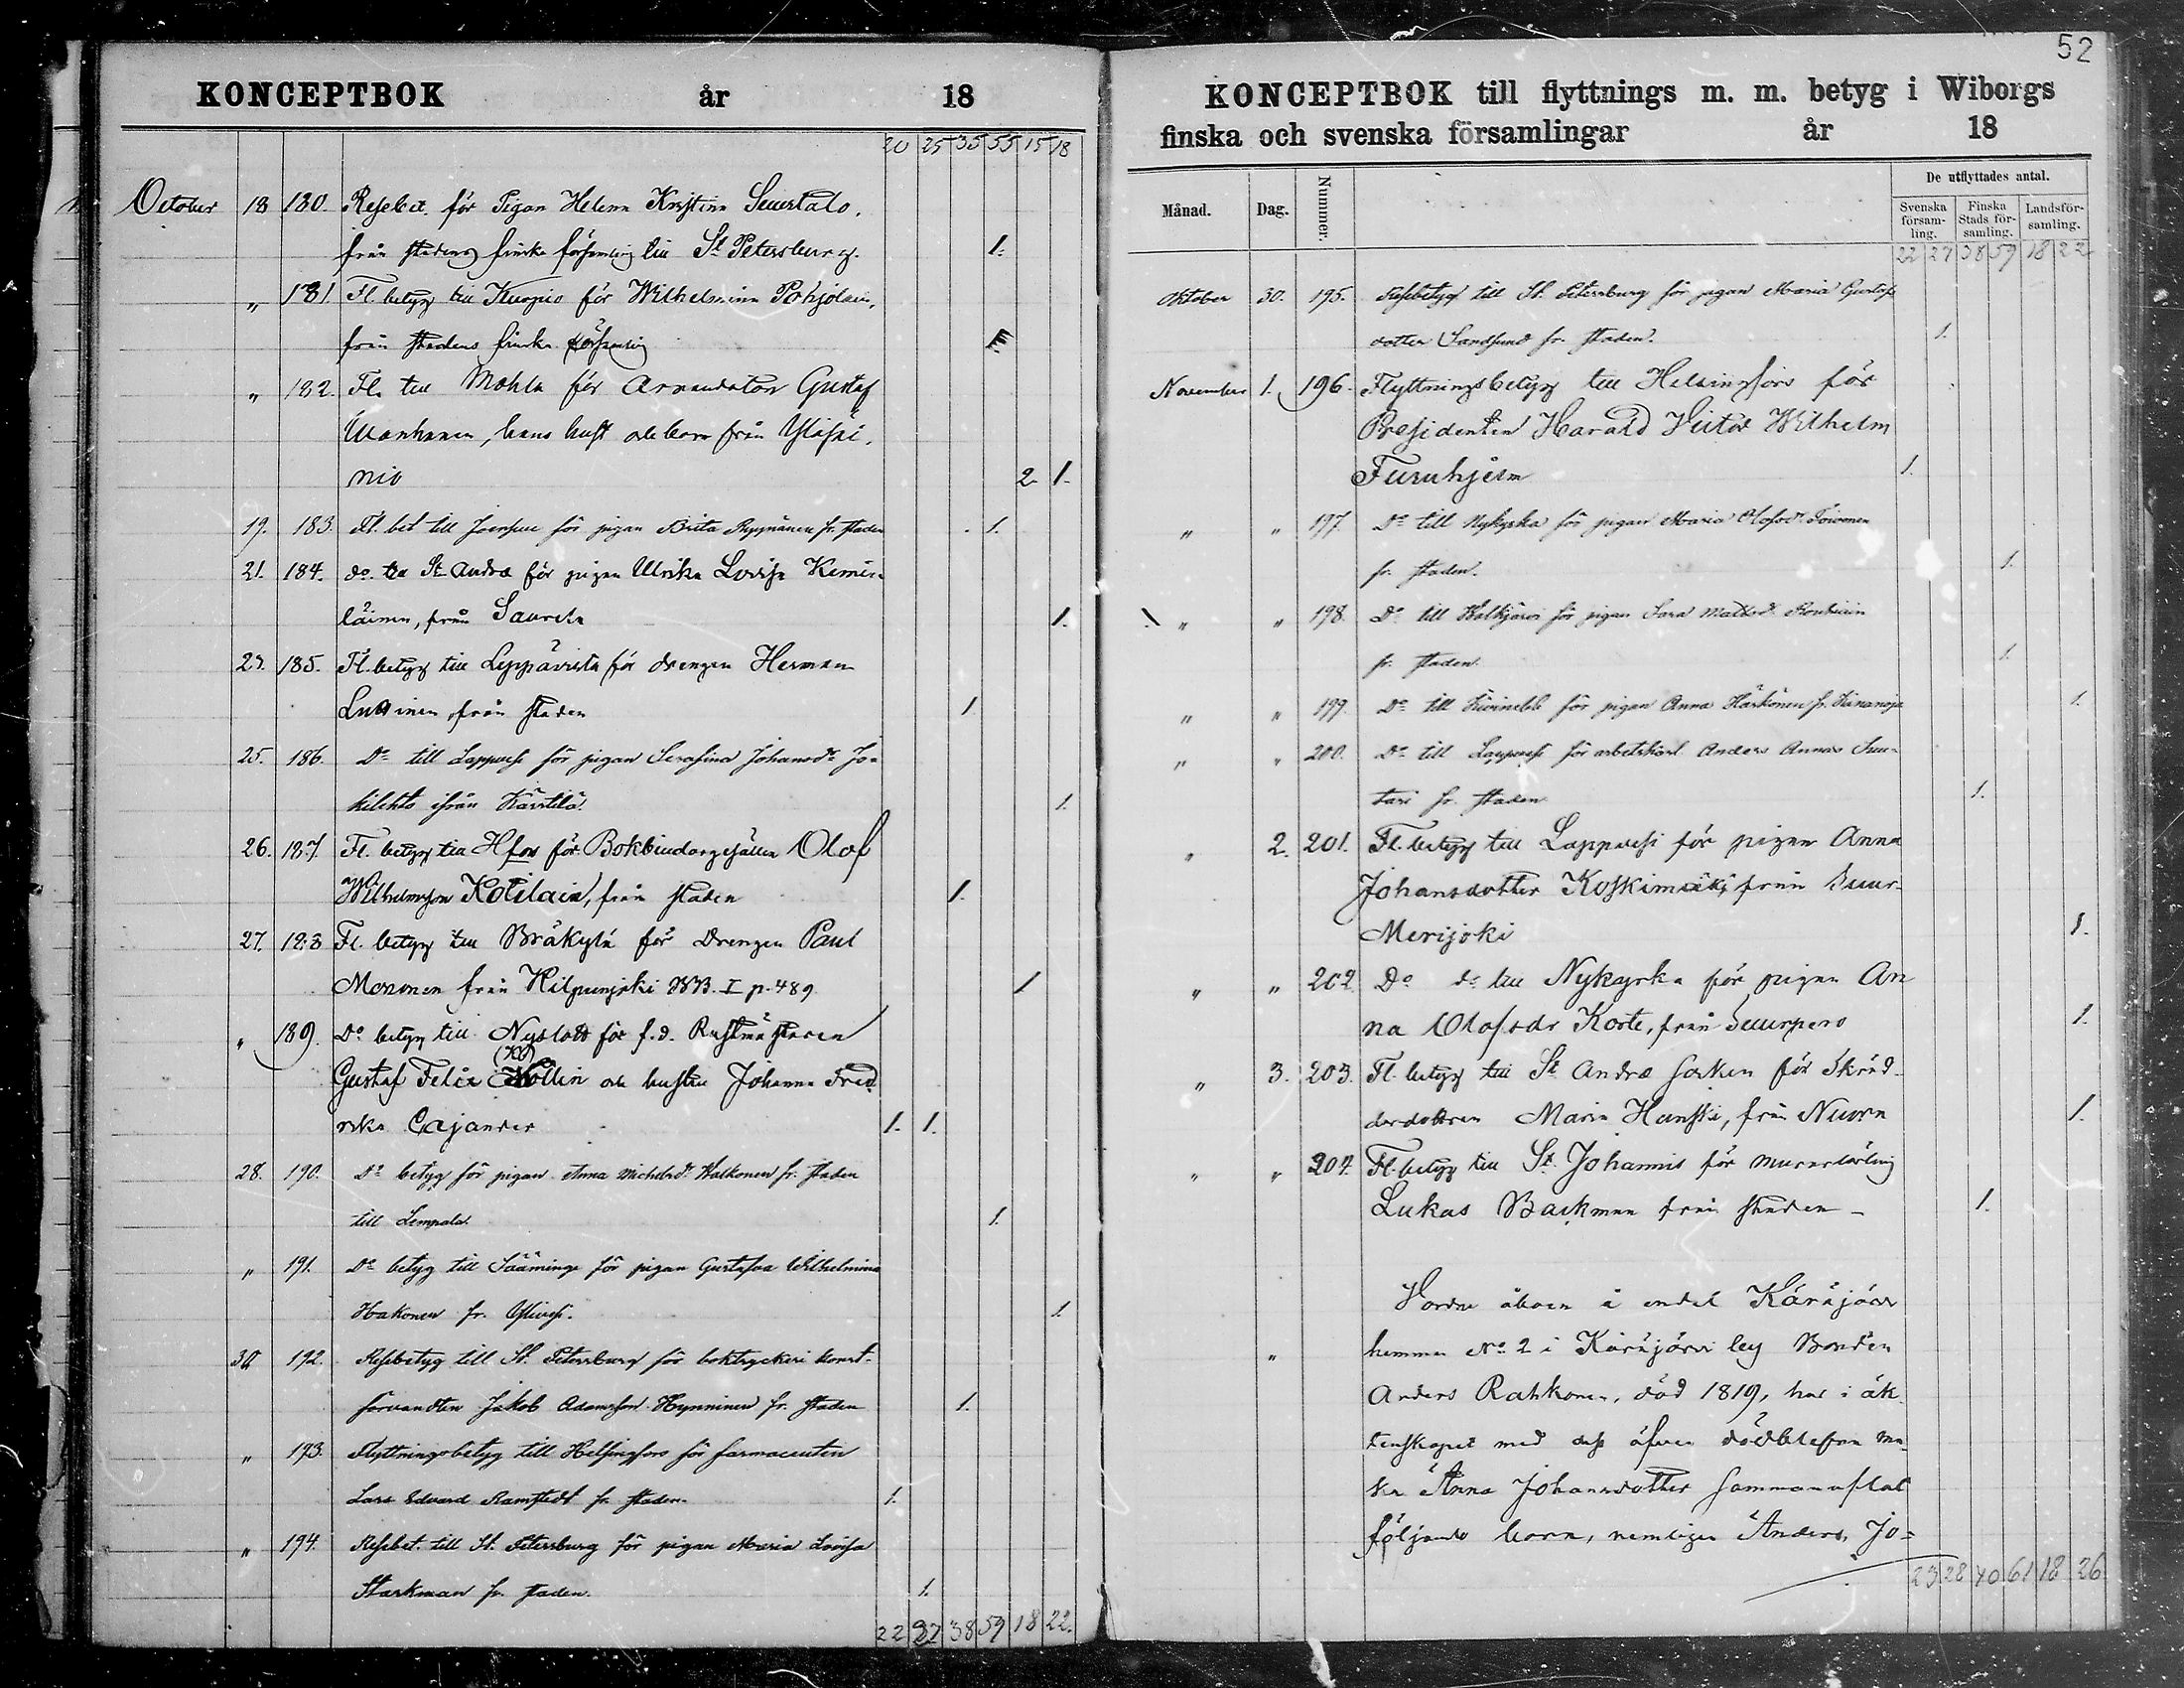 KONCEPTBOK år 18
20 25 35 55 15 18
October 18 180. Resebet. för Pigan Helena Kristina Seuertalo,
från stadens finska församling till St Petersburg. 1.
" 181 Fl. betyg till Kuopio för Wilhelmina Pohjolain,
från stadens finska församling
" 182. Fl. till Mohla för Arrendatorn Gustaf
hans hust och barn från Yläsäi,
niö 2 1.
19. 183. Fl. bet till Joensuu för pigan Brita Reppnänen fr. staden 1.
21. 184. do. till St Andræ för pigan Ulrika Lovisa Kemi-
läinen, från 1.
23. 185. Fl. betyg till Leppävirta för drengen Herman
från staden 1
25. 186. Do till Lappvesi för pigan Serafina Johansdr Jo-
kilehto ifrån Kärstilä. 1.
26. 187. Fl. betyg till Hfors för Bokbindargesällen Olof
Wilhelmsson Kotilain, från staden 1.
27. 188 Fl. betyg till Bräkylä för Drengen Paul
Mononen från Kilpeenjoki KB. I p. 489 1
" 189. Do betyg till Nyslott för f.d. Rustmästaren
Gustaf Felix Nollin och hustru Johanna Fred
rika Cajander 1. 1.
28. 190. Do betyg för pigan Anna Michelsdr Kalkonen fr. staden
till Lempala. 1.
" 191. Do betyg till Sääminge för pigan Gustafva Wilhelmina
Hakonen fr. 1.
30 192. Resebetyg till St. Petersburg för boktryckeri konst-
förvandten Jakob Adamsson Hynninen fr. staden 1.
" 193. Flyttningsbetyg till Helsingfors för farmaceuten
Lars Edvard Ramstedt fr. staden. 1.
" 194. Resebet. till St. Petersburg för pigan Maria Lovisa
Starkman fr. staden. 1.
22 27 38 59 18 22.
52
KONCEPTBOK till flyttnings m. m. betyg i Wiborgs
finska och svenska församlingar år 18
Månad. Dag. Nummer. De utflyttades antal.
Svenska församling. Finska Stads församling. Landsförsamling.
22 27 38 59 18 22
Oktober 30. 195. Resebetyg till St. Petersburg för pigan Maria Gustafs
dotter Sandsund fr. staden. 1.
November 1. 196. Flyttningsbetyg till Helsingfors för
Presidenten Harald Viktor Wilhelm
Furuhjelm 1.
" " 197. Do till Nykyrka för pigan Maria Olofsdr Toivonen
fr. staden. 1.
" " 198. Do till Walkjärvi för pigan Sara Mattsdr
fr. staden. 1.
" " 199. Do till Kivinebb för pigan Anna Härkönen fr. 1.
" " 200. Do till Lappvesi för arbetskarl Anders Annas Suu-
tari fr. staden 1.
" 2. 201. Fl. betyg till Lappvesi för pigan Anna
Johansdotter Koskimäki från Suur-
Merijoki 1.
" " 202 Do do till Nykyrka för pigan An
na Olofsdr Koste, från Suurpero 1.
" 3. 203. Fl. betyg till St Andræ Socken för Skräd-
derdottren Maria Hanski, från Nuora 1.
" " 204. Fl. betyg till St. Johannis för murarlärling
Lukas Backman från staden - 1.
åboen å endel Käräjärvi
" hemman No 2 i Käräjärvi by Bonden
Anders Rahkonen, död 1819, har i äk
tenskapet med dess äfven dödblefna ma
ka Anna Johansdotter sammanaflat
följande barn, nemligen Anders, Jo-
23 28 40 61 18 26